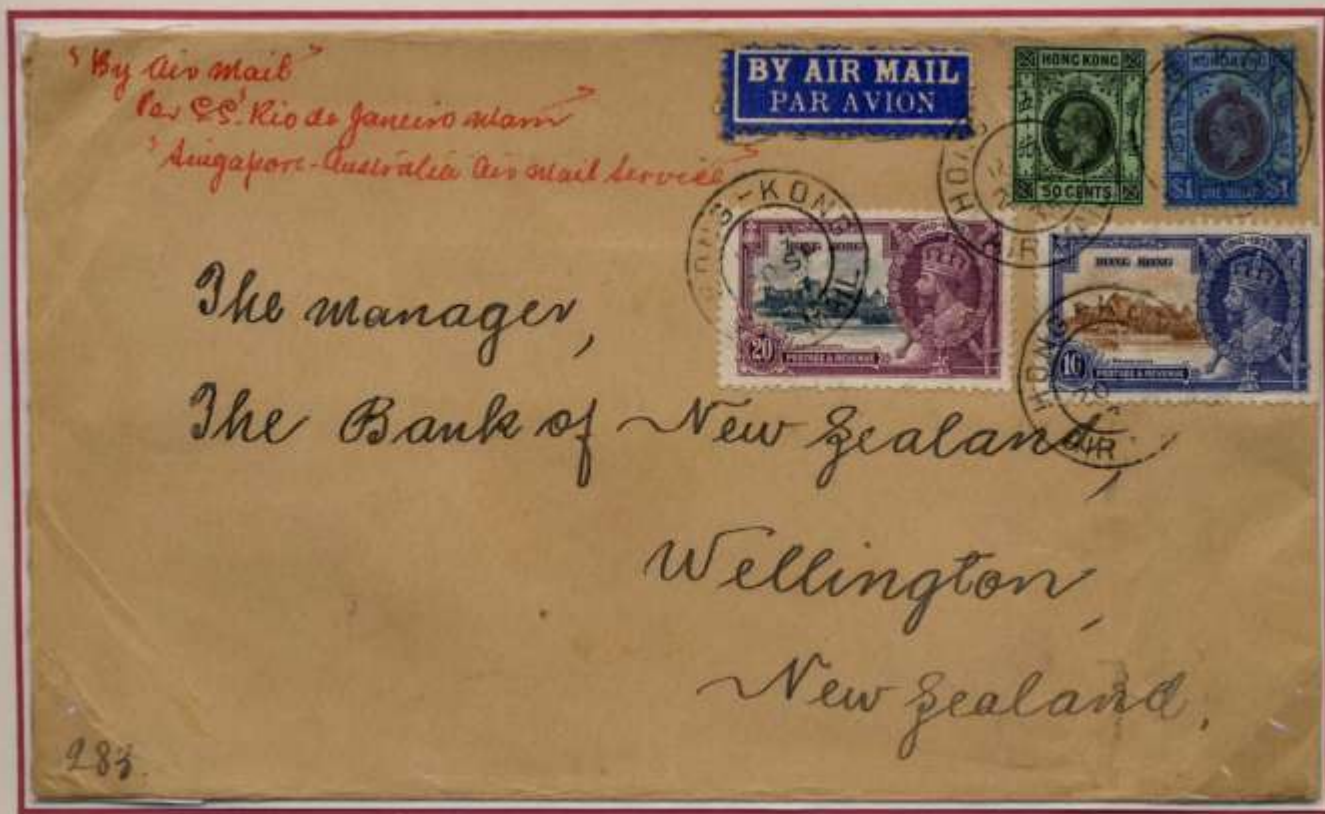 "By Air Mail"
Per S.S. Rio de Janeiro Maru
"Singapore-Australia Air Mail Service"
BY AIR MAIL
PAR AVION
HONG KONG
五
50 CENTS
HONG KONG
$1 $1
HONG-KONG
AIR MAIL
HONG-KONG
MAIL
HONG KONG
1910-1935
20
POSTAGE & REVENUE
HONG KONG
1910-1935
10
POSTAGE & REVENUE
HONG
20
AIR
The Manager,
The Bank of New Zealand,
Wellington,
New Zealand.
283.